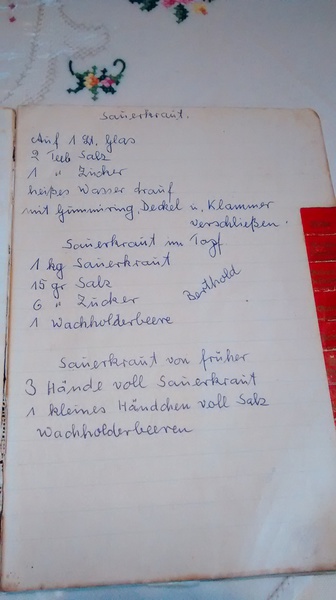 Sauerkraut.
Auf 1 Lt. Glas
2 Teel Salz
1 " Zucker
heißes Wasser drauf
mit Gummiring, Deckel u. Klammer
verschließen.
Sauerkraut im Topf
1 kg Sauerkraut
15 gr Salz
6 " Zucker
Berthold
1 Wachholderbeere
Sauerkraut von früher
3 Hände voll Sauerkraut
1 kleines Händchen voll Salz
Wachholderbeeren